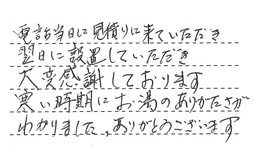 電話当日に見積りに来ていただき
翌日に設置していただき
大変感謝しております
寒い時期にお湯のありかたさが
わかりました。ありがとうございます